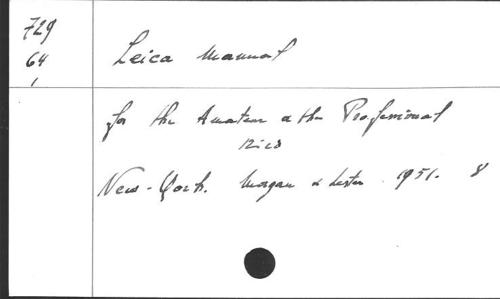 729
64
1
Leica Manual
for the Amateur & the Professional
New-York. Morgan & Lester. 1951. 8